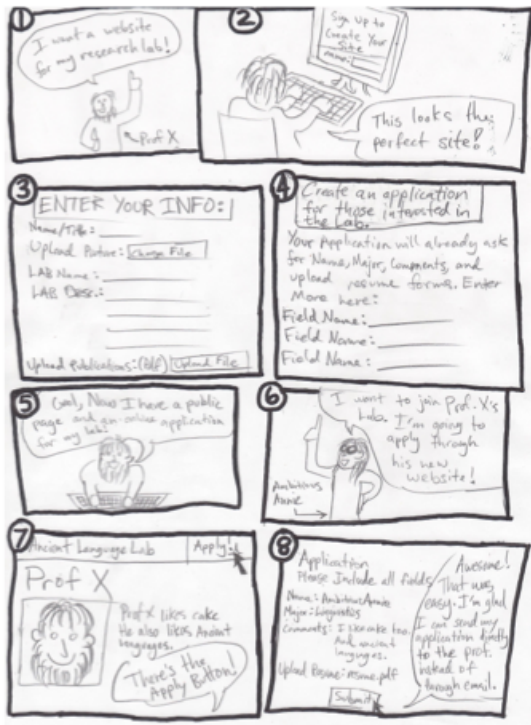 1
I want a website
for my research lab!
Prof X
2
Sign up to
Create Your
Site
name:
This looks the
perfect site!
3
ENTER YOUR INFO:
Name/Title:
Upload Picture: Change File
LAB Name:
LAB Desc.:
Upload Publications: (Pdf) Upload File
4
Create an application
for those interested in
the Lab.
Your Application will already ask
for Name, Major, Comments, and
upload resume forms. Enter
More here:
Field Name:
Field Name:
Field Name:
5
Cool, Now I have a public
page and an online application
for my lab!
6
I want to join Prof. X's
Lab. I'm going to
apply through
his new
website!
Ambitious
Annie
7
Ancient Language Lab Apply!
Prof X
Prof X likes cake
He also likes Ancient
languages.
There's the
Apply Button!
8
Application
Please Include all fields
Name: Ambitious Annie
Major: Linguistics
Comments: I like cake too.
And ancient
languages.
Upload Resume: resume.pdf
Submit
Awesome!
That was
easy. I'm glad
I can send my
application directly
to the prof.
instead of
through email.